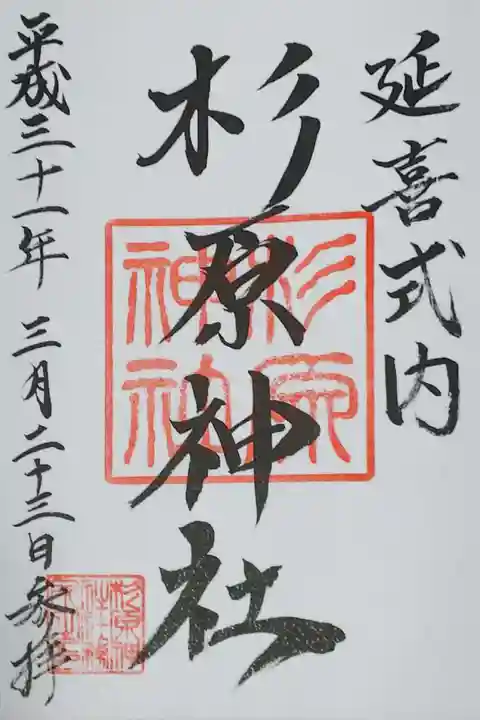 延喜式内
杉原神社
平成三十一年 三月二十三日参拝
杉原
神社